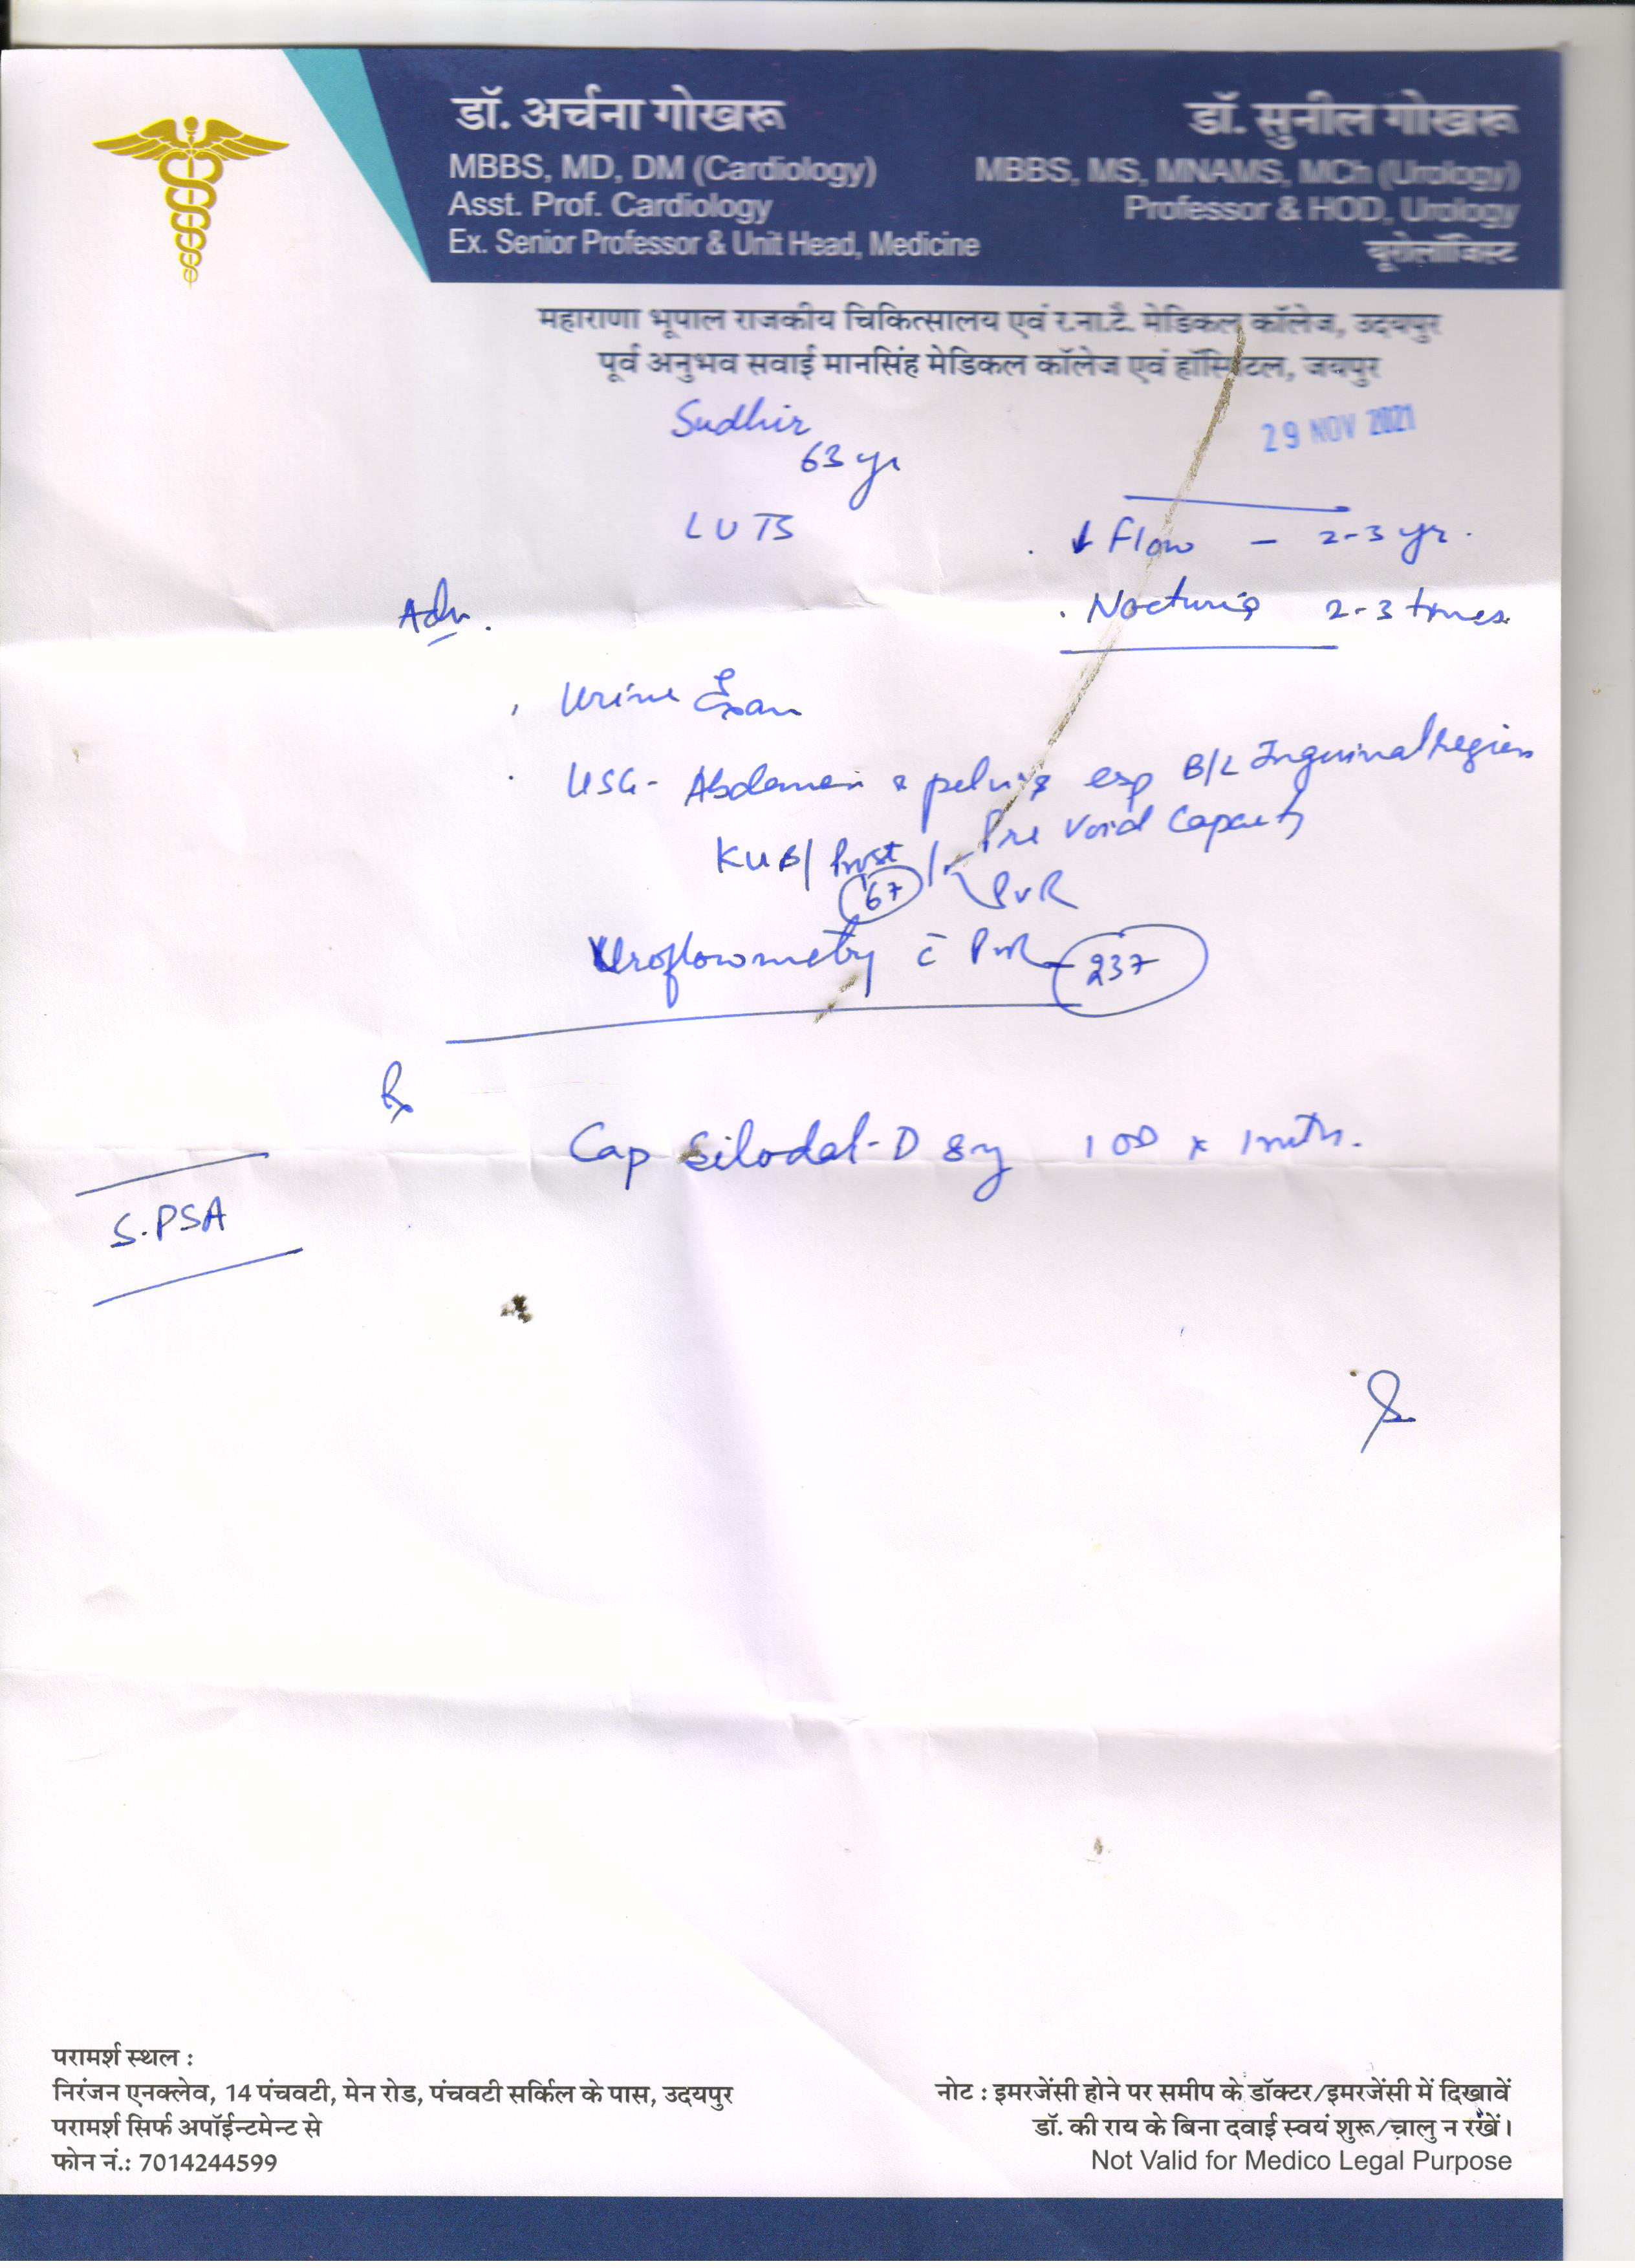 डॉ. अर्चना गोखरू
MBBS, MD, DM (Cardiology)
Asst. Prof. Cardiology
Ex. Senior Professor & Unit Head, Medicine
डॉ. सुनील गोखरू
MBBS, MS, MNAMS, MCh (Urology)
Professor & HOD, Urology
यूरोलॉजिस्ट
महाराणा भूपाल राजकीय चिकित्सालय एवं र.ना.टै. मेडिकल कॉलेज, उदयपुर
पूर्व अनुभव सवाई मानसिंह मेडिकल कॉलेज एवं हॉस्पिटल, जयपुर
Sudhir
63 yr
29 NOV 2021
LUTS
. ↓ Flow - 2-3 yr.
. Nocturia 2-3 times
Adv.
. Urine Exam
. USG- Abdomen & pelvis esp B/L Inguinal region
KUB/ Prost / Pre Void Capacity
67
PVR
Uroflowmetry c̄ PVR 237
℞
Cap Silodal-D 8mg 1 OD x 1 mth.
S.PSA
परामर्श स्थल :
निरंजन एनक्लेव, 14 पंचवटी, मेन रोड, पंचवटी सर्किल के पास, उदयपुर
परामर्श सिर्फ अपॉईन्टमेन्ट से
फोन नं.: 7014244599
नोट : इमरजेंसी होने पर समीप के डॉक्टर/इमरजेंसी में दिखावें
डॉ. की राय के बिना दवाई स्वयं शुरू/चालु न रखें।
Not Valid for Medico Legal Purpose